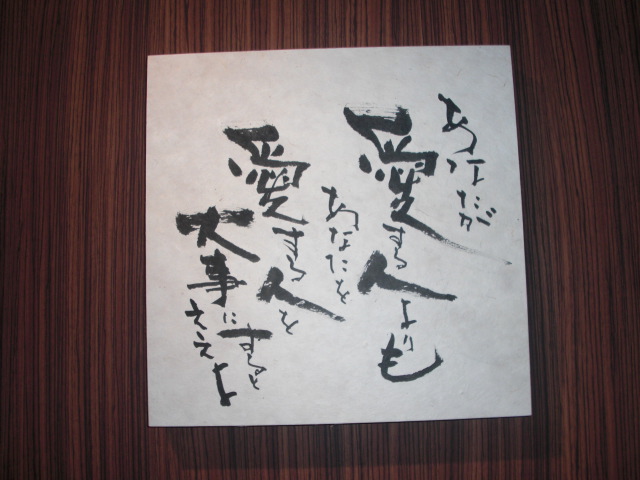 あなたが
愛する人よりも
あなたを
愛する人を
大事にすると
ええよ